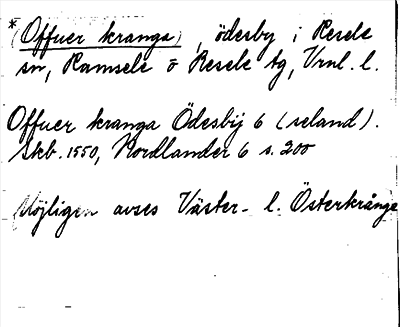 *(Offuer kranga), ödesby i Resele
sn, Ramsele o Resele tg, Vrnl. l.
Offuer kranga Ödesbij 6 (seland).
Skb. 1550, Nordlander 6 s. 200
Möjligen avses Väster- l. Österkrånge